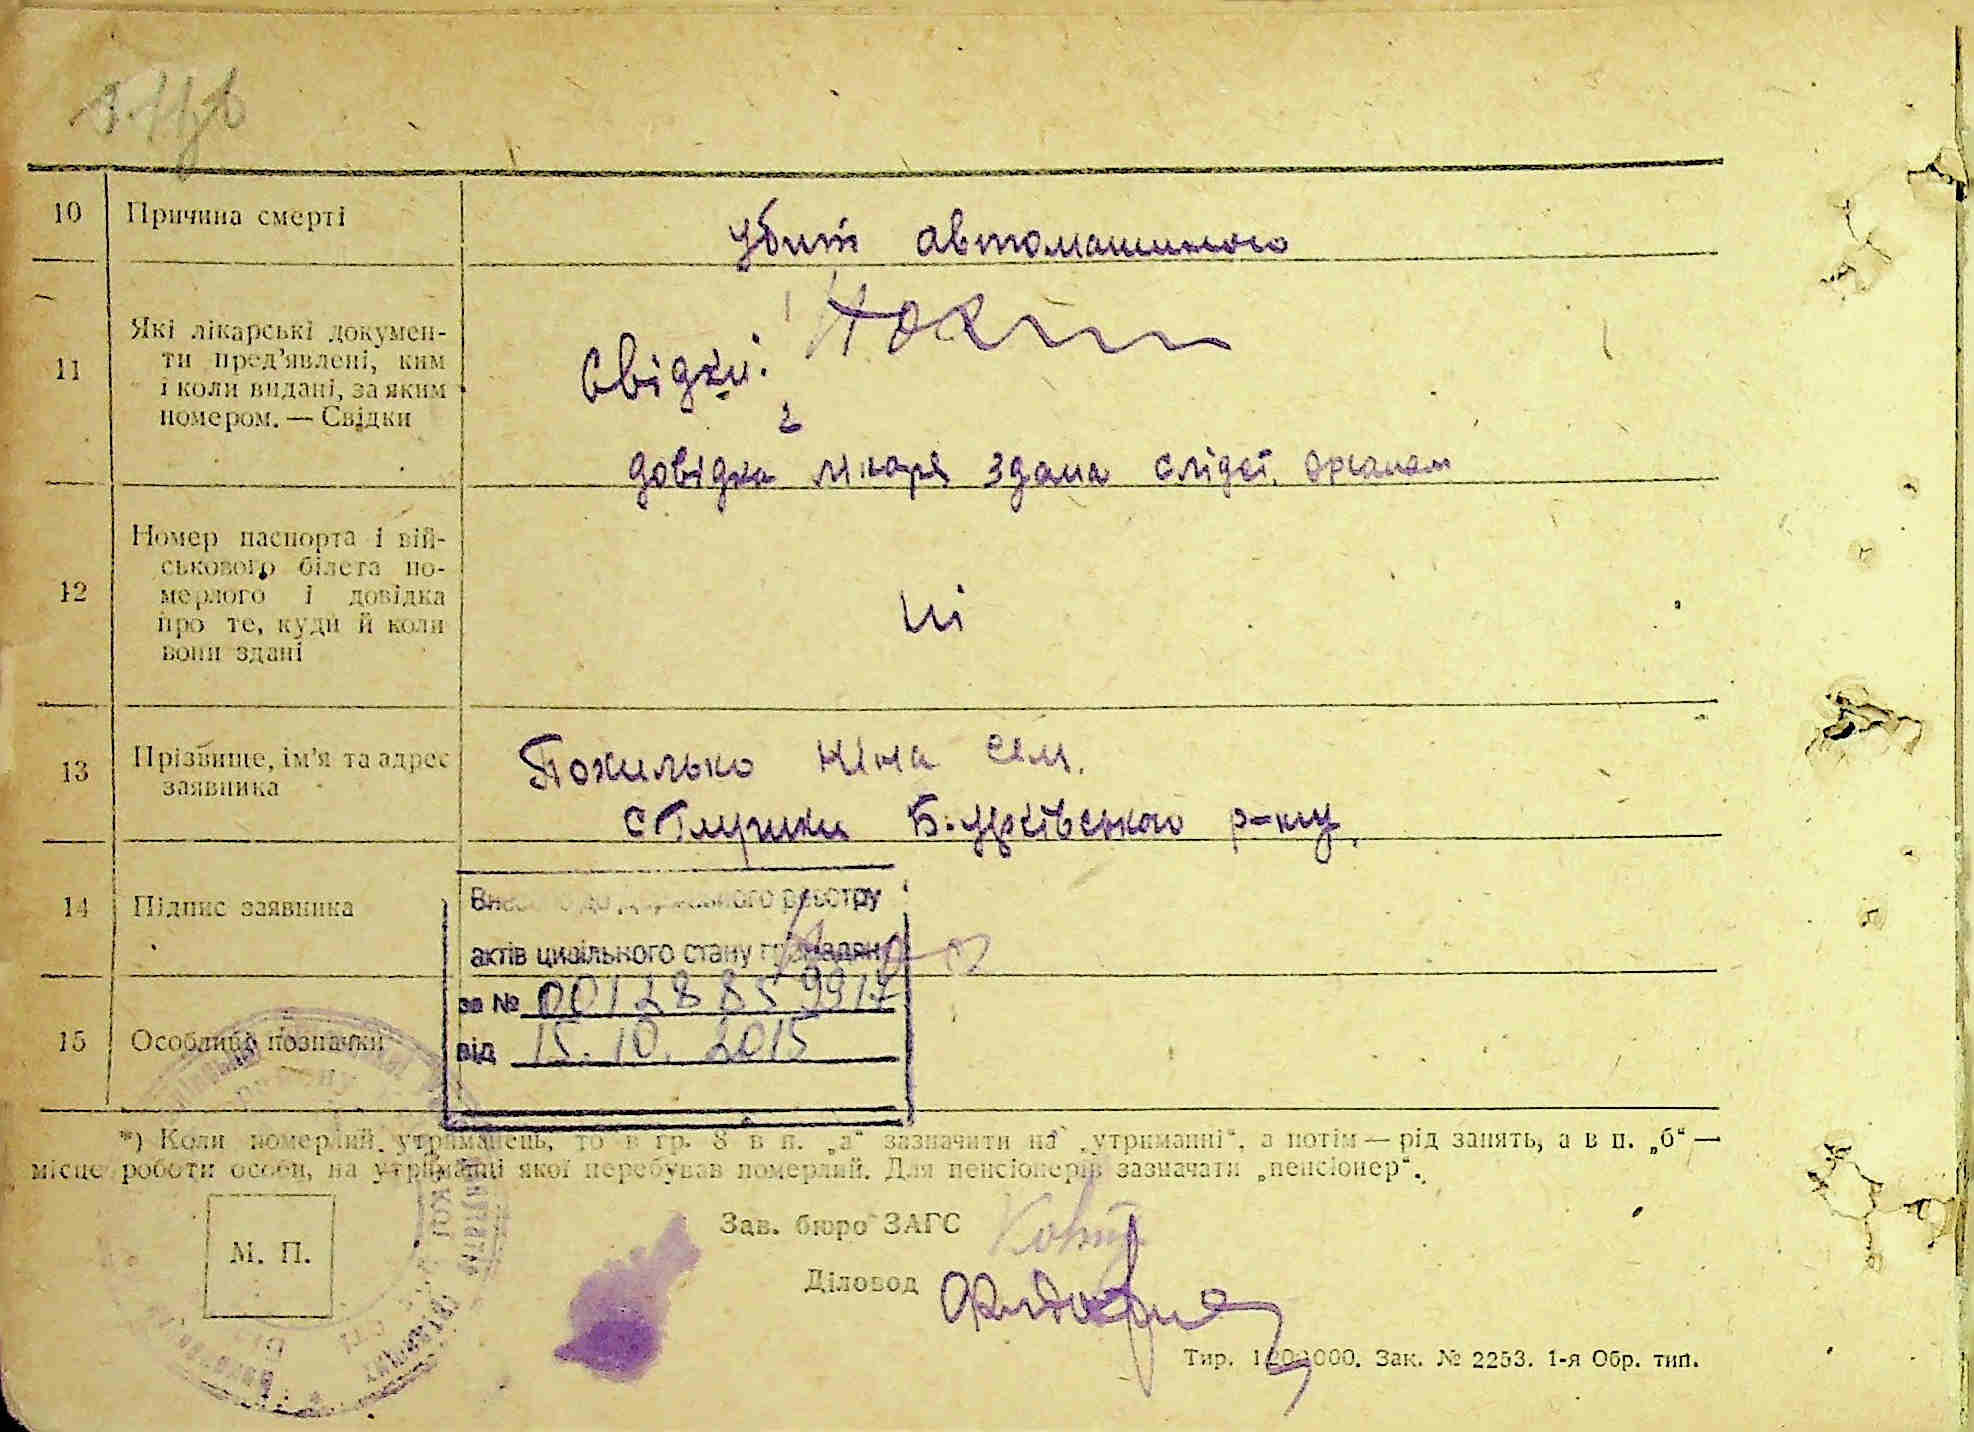 10 Причина смерті
убит автомашиною
11 Які лікарські докумен-
ти пред'явлені, ким
і коли видані, за яким
номером. — Свідки
Свідки:
2
довідка лікаря здана слідст. органам
12 Номер паспорта і вій-
ськового білета по-
мерлого і довідка
про те, куди й коли
вони здані
ні
13 Прізвище, ім'я та адрес
заявника
Пожилько Ніна Сем.
с Глушки Б.церківського р-ну.
14 Підпис заявника
Внесено до Державного реєстру
актів цивільного стану громадян
за № 00128859917
від 15.10.2015
15 Особливі позначки
*) Коли померлий утриманець, то в гр. 8 в п. „а“ зазначити на „утриманні“, а потім — рід занять, а в п. „б“ —
місце роботи особи, на утриманні якої перебував померлий. Для пенсіонерів зазначати „пенсіонер“.
М. П.
Зав. бюро ЗАГС
Діловод
Тир. 1200000. Зак. № 2253. 1-я Обр. тип.